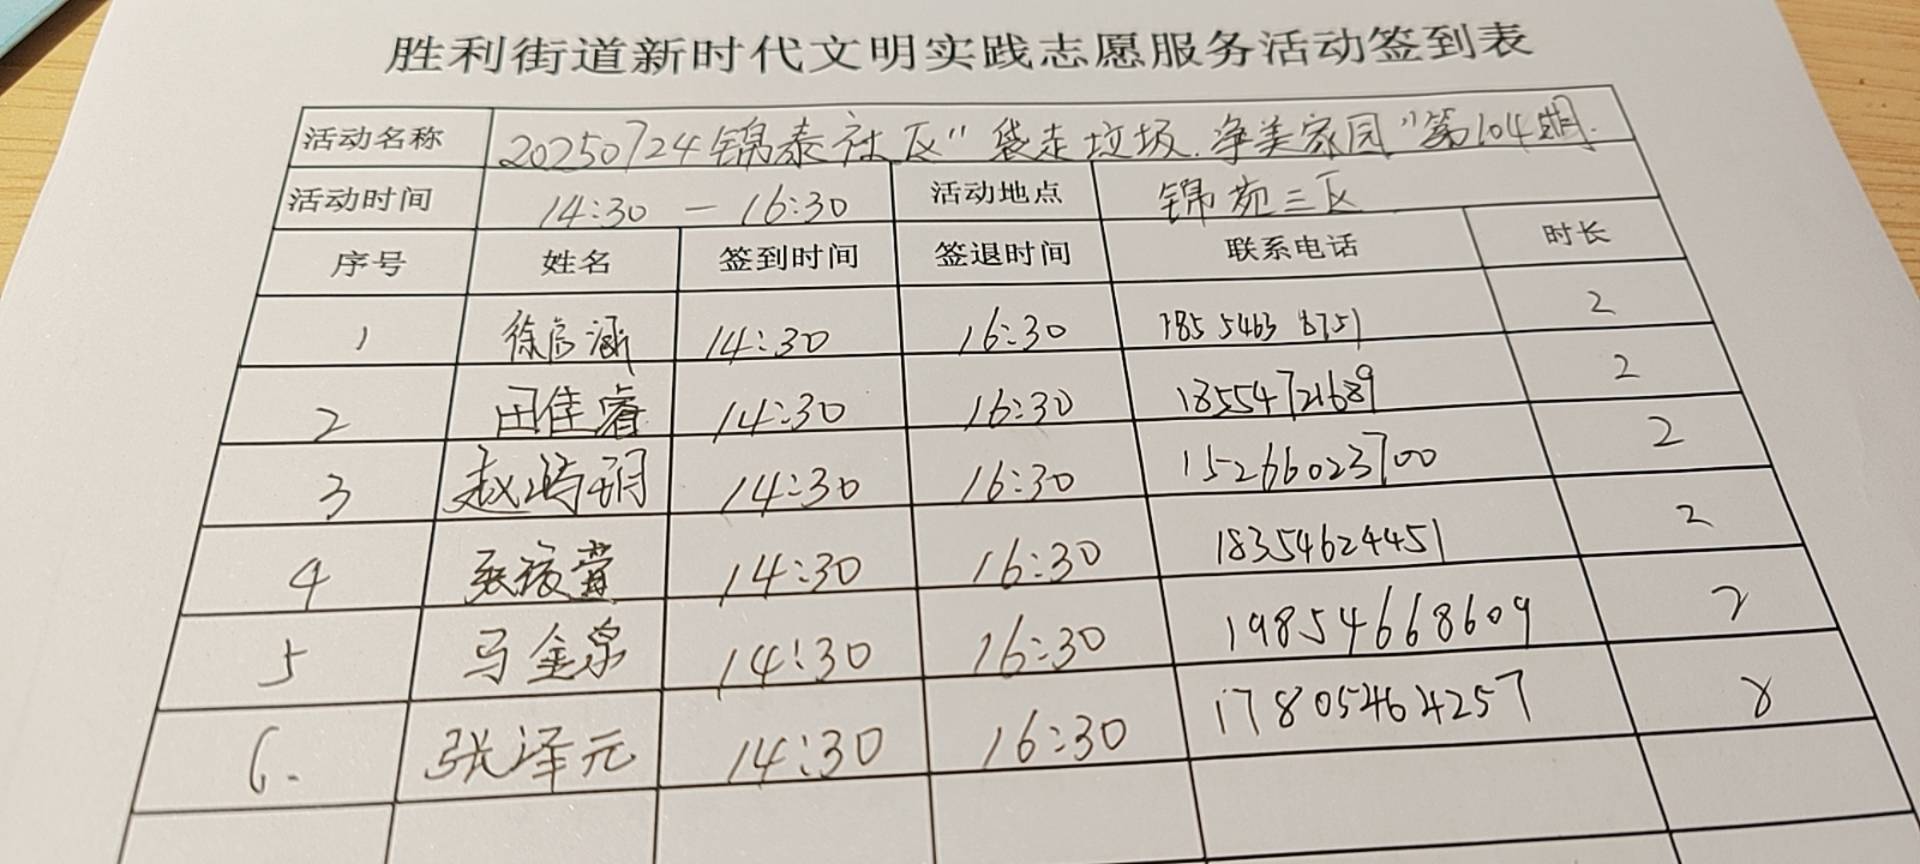 胜利街道新时代文明实践志愿服务活动签到表
活动名称 20250724锦泰社区"袋走垃圾.净美家园"第104期.
活动时间 14:30 — 16:30 活动地点 锦苑三区
序号 姓名 签到时间 签退时间 联系电话 时长
1 徐 涵 14:30 16:30 185 5463 8751 2
2 田佳睿 14:30 16:30 18554721689 2
3 赵 玥 14:30 16:30 15266023700 2
4 张 萱 14:30 16:30 18354624451 2
5 马金泉 14:30 16:30 19854668609 2
6. 张泽元 14:30 16:30 17805464257 2